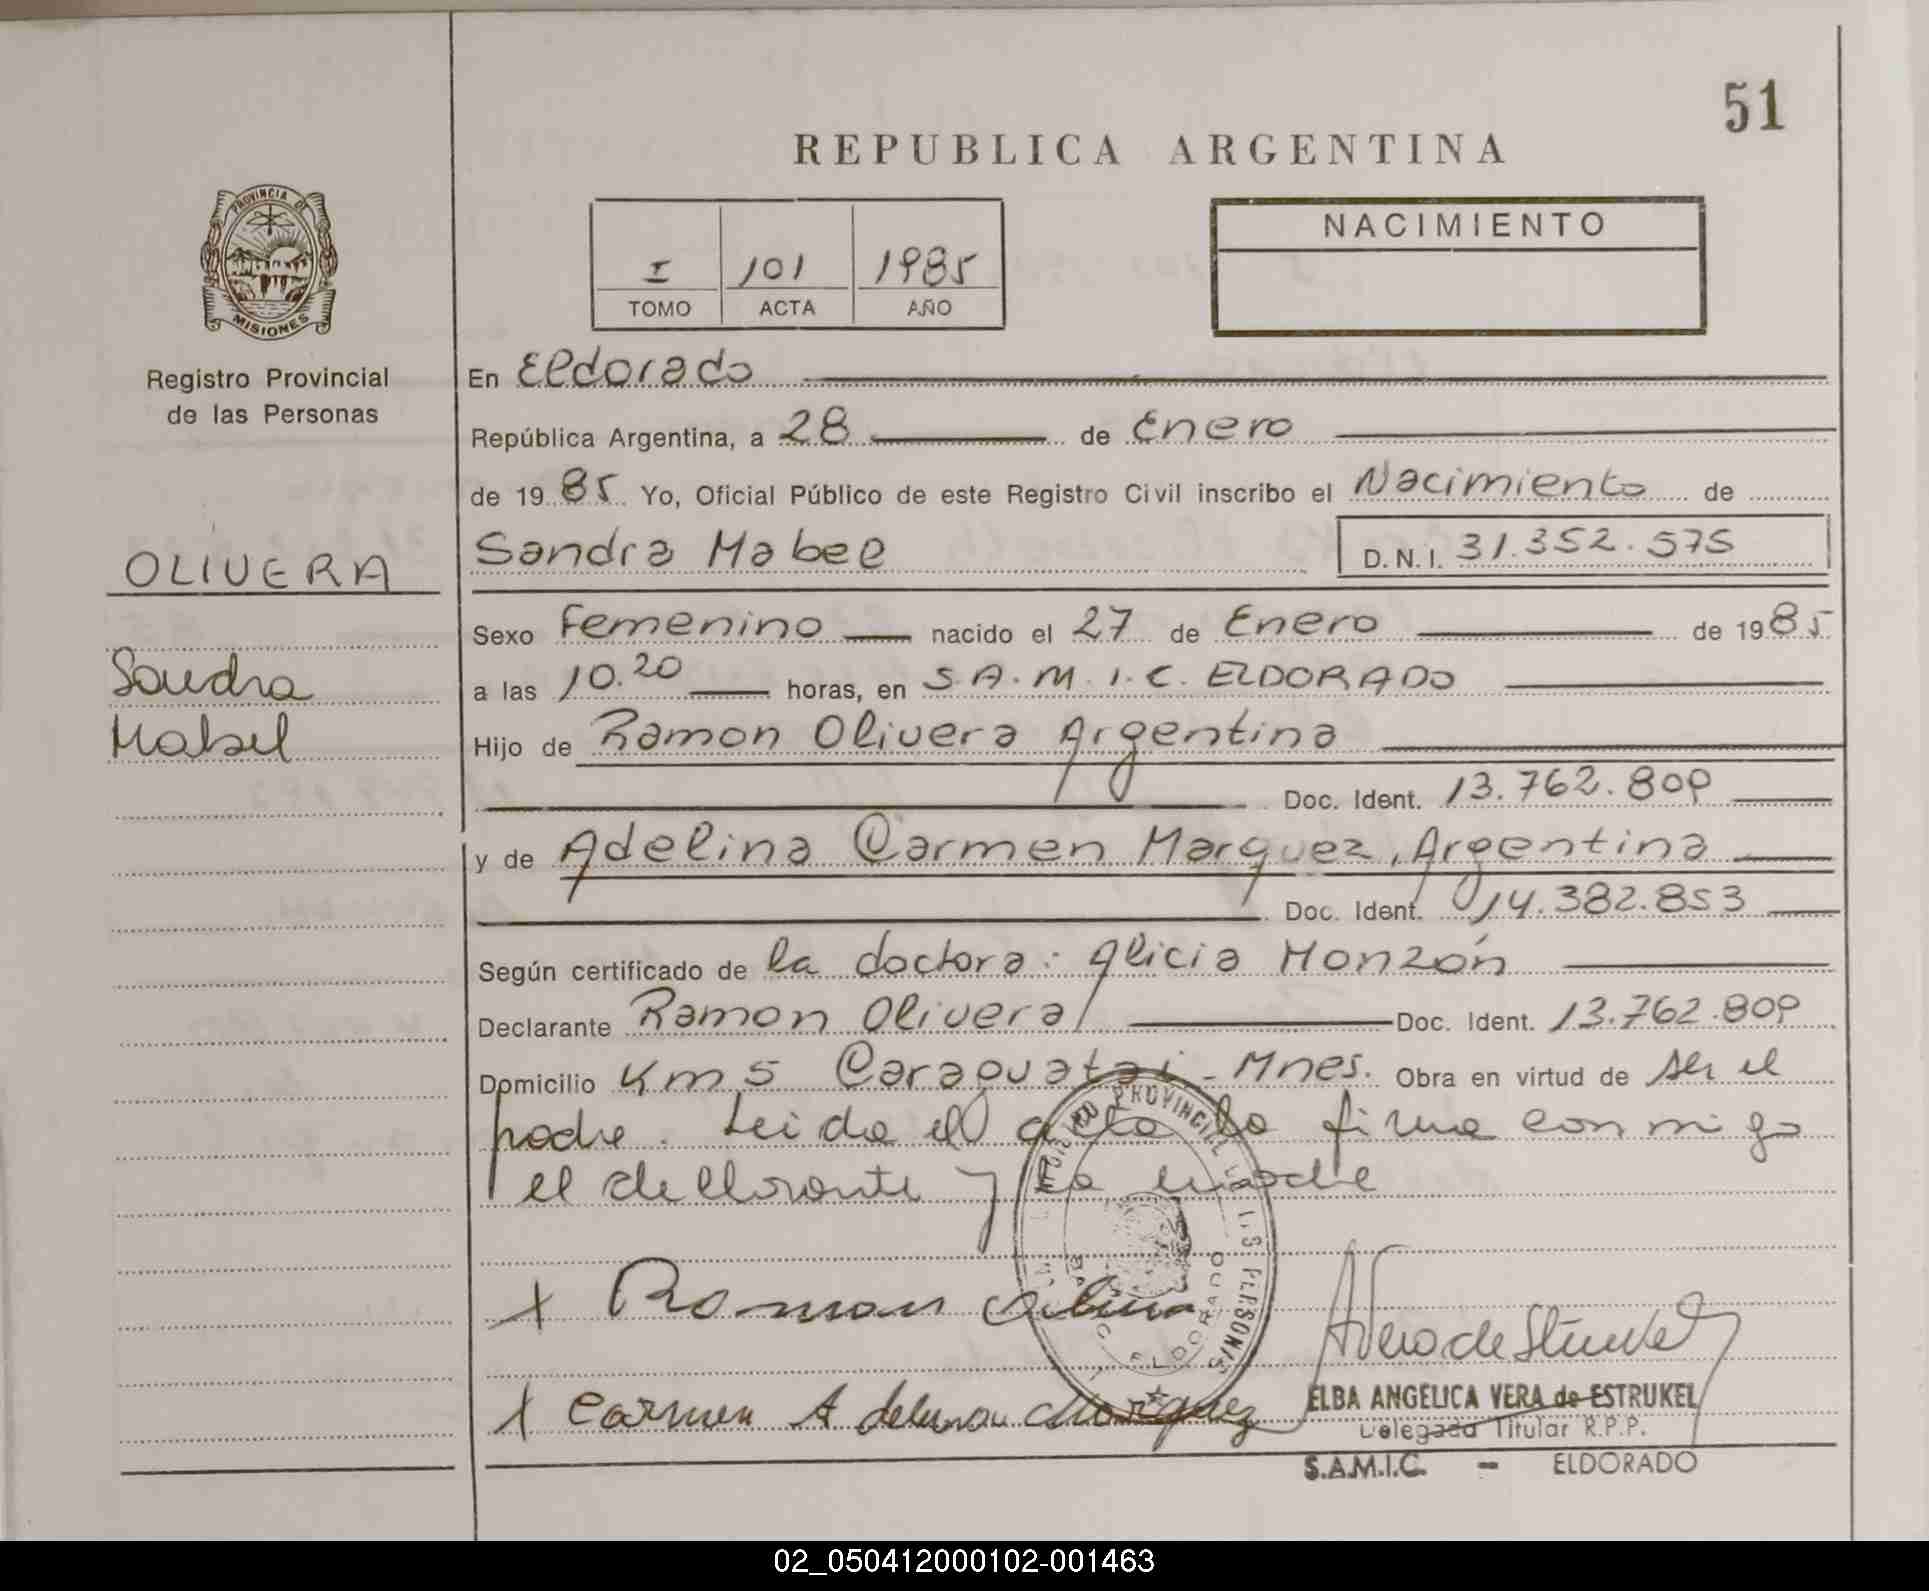 51
REPUBLICA ARGENTINA
PROVINCIA DE
MISIONES
I 101 1985
TOMO ACTA AÑO
NACIMIENTO
Registro Provincial
de las Personas
OLIVERA
Sandra
Mabel
En Eldorado
República Argentina, a 28 de Enero
de 1985 Yo, Oficial Público de este Registro Civil inscribo el Nacimiento de
Sandra Mabel D.N.I. 31.352.575
Sexo Femenino nacido el 27 de Enero de 1985
a las 10.20 horas, en S.A.M.I.C. ELDORADO
Hijo de Ramon Olivera Argentina
Doc. Ident. 13.762.809
y de Adelina Carmen Marquez, Argentina
Doc. Ident. 14.382.853
Según certificado de la doctora: Alicia Monzón
Declarante Ramon Olivera Doc. Ident. 13.762.809
Domicilio Km 5 Caraguatai - Mnes. Obra en virtud de ser el
padre. Leida el acta la firma conmigo
el declarante y la madre
PROVINCIAL LAS PERSONAS
ELDORADO
x Ramon Olivera
x Carmen Adelina Marquez
ELBA ANGELICA VERA de ESTRUKEL
Delegada Titular R.P.P.
S.A.M.I.C. - ELDORADO
02_050412000102-001463